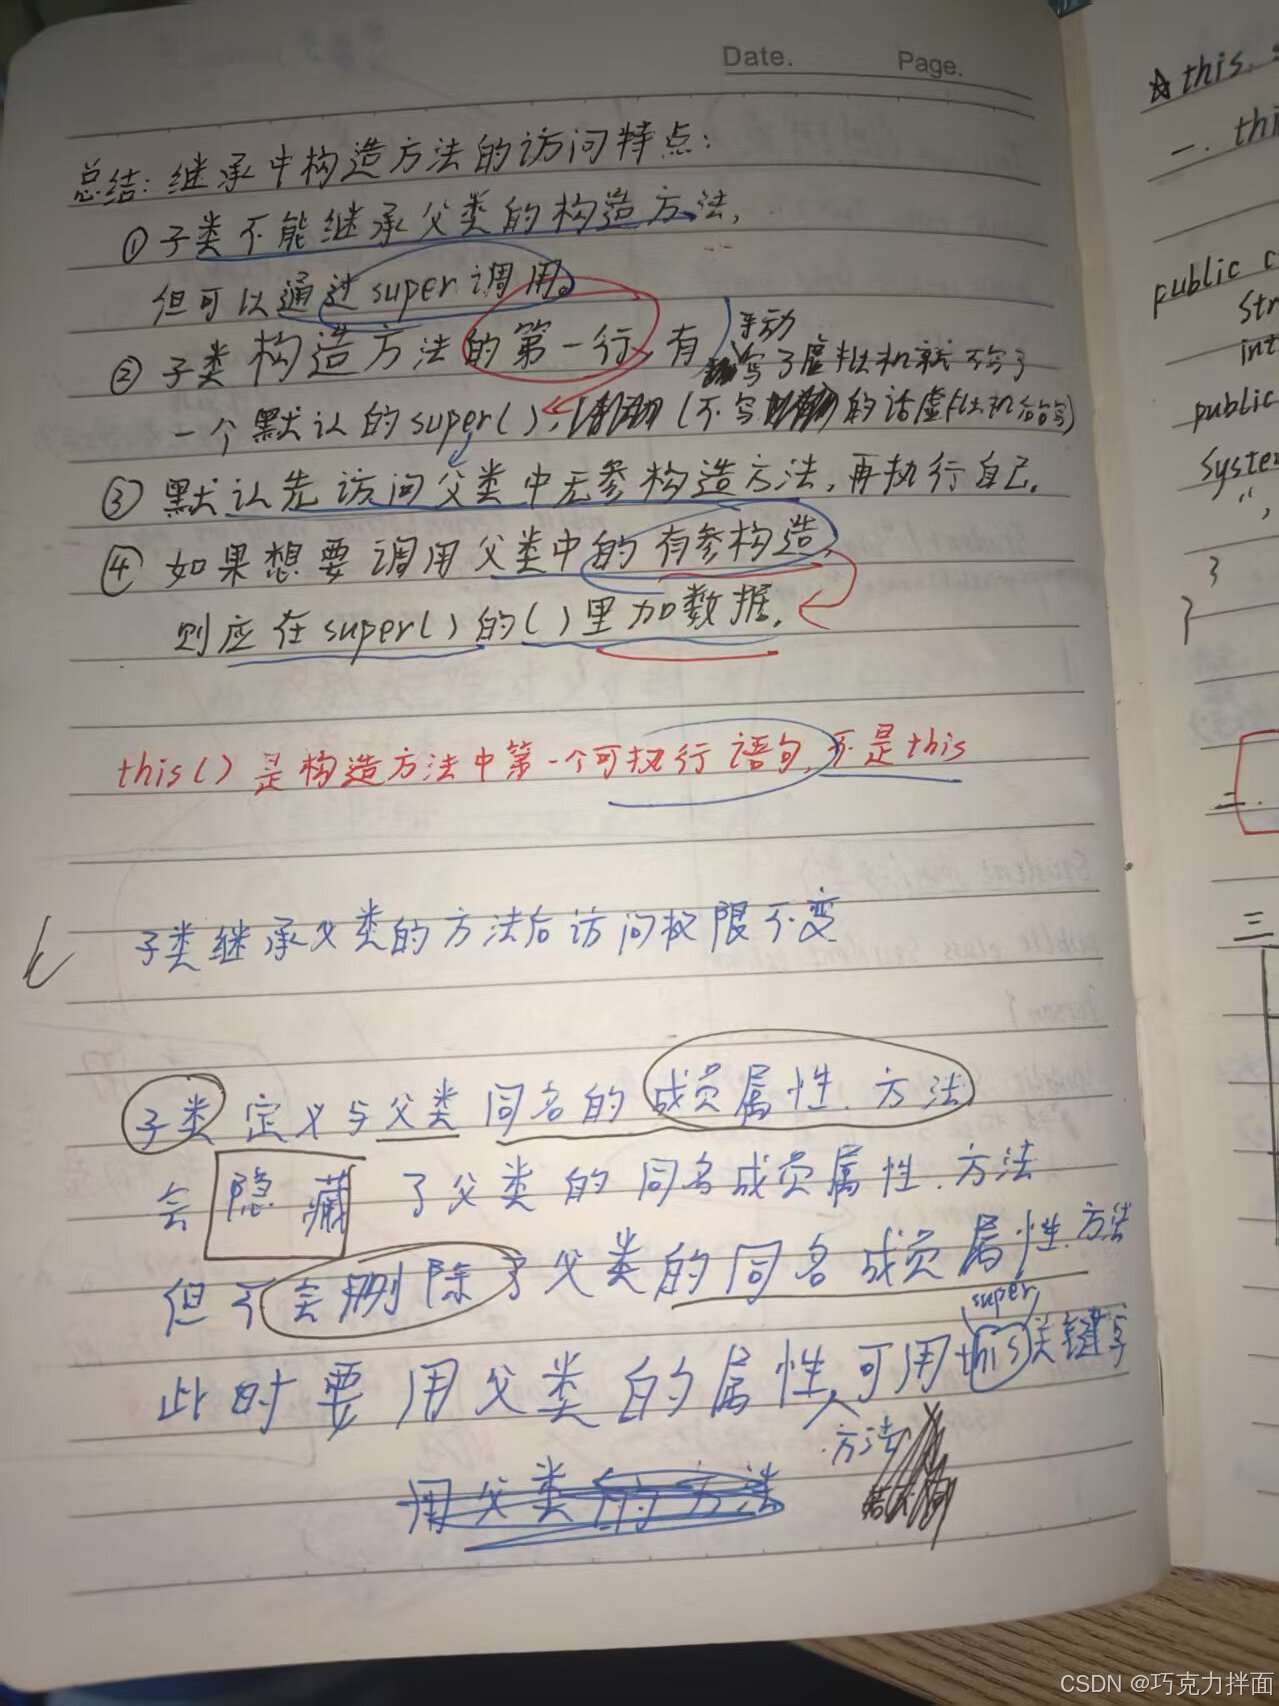 Date.
Page.
总结:继承中构造方法的访问特点:
①子类不能继承父类的构造方法,
但可以通过super调用。
②子类构造方法的第一行,有
手动
写了虚拟机就不写了
一个默认的super(),(不写的话虚拟机会给写)
③默认先访问父类中无参构造方法,再执行自己.
④如果想要调用父类中的有参构造,
则应在super()的()里加数据.
this()是构造方法中第一个可执行语句,不是this
子类继承父类的方法后访问权限不变
子类定义与父类同名的成员属性、方法
会隐藏了父类的同名成员属性、方法
但不会删除了父类的同名成员属性、方法
super
此时要用父类的属性、可用this关键字
方法
用父类的方法
☆this、
一.thi
public c
Str
int
public
System
",
}
}
二.
三
CSDN @巧克力拌面